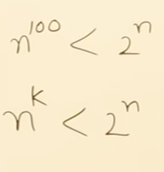 n^100 < 2^n
n^k < 2^n